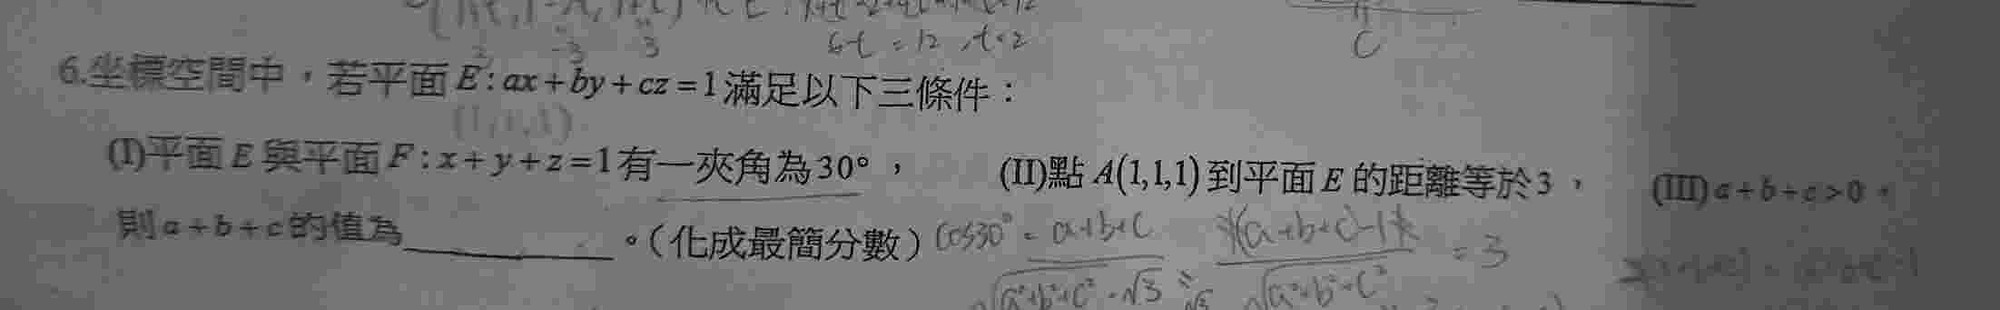 6t = 12, t=2
C
-3 3
6.坐標空間中，若平面 E: ax+by+cz=1 滿足以下三條件：
(1,1,1)
(I)平面 E 與平面 F: x+y+z=1 有一夾角為30°， (II)點 A(1,1,1) 到平面 E 的距離等於3， (III) a+b+c>0，
則 a+b+c 的值為________。（化成最簡分數） cos30° = a+b+c / √a²+b²+c² · √3 |(a+b+c)-1| / √a²+b²+c² = 3